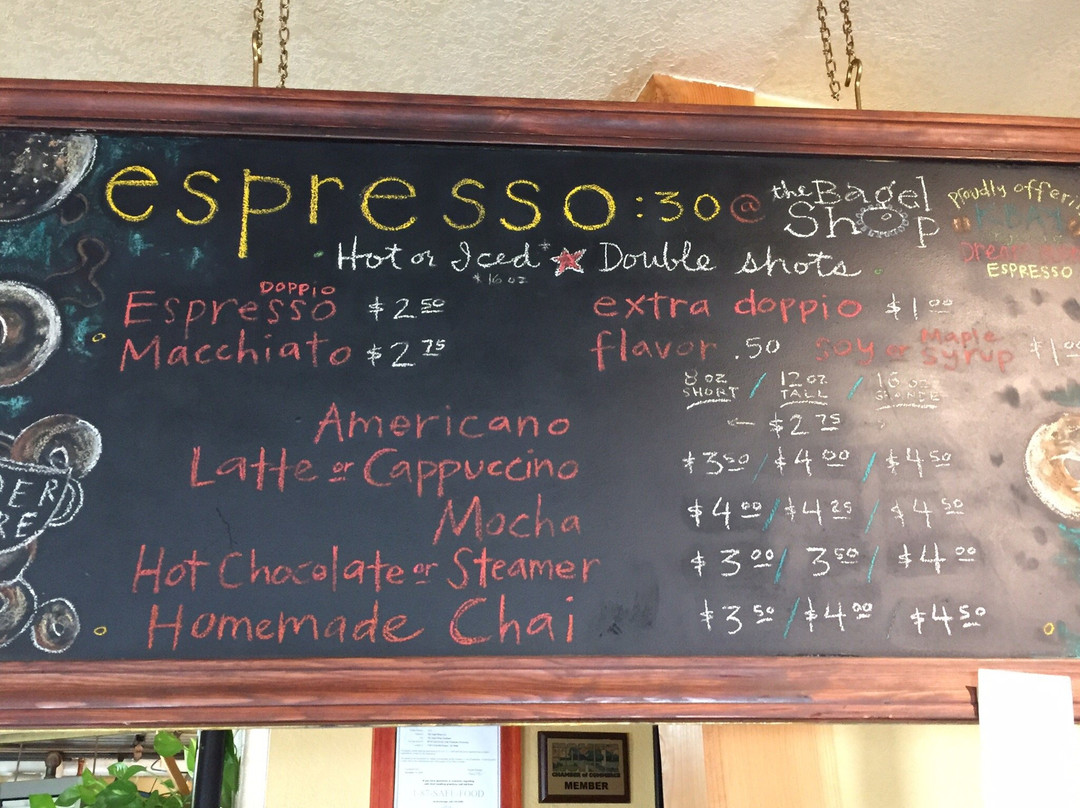 espresso:30 @ the Bagel Shop
proudly offering
ESPRESSO
Hot or Iced ☆ Double shots
$16 oz
DOPPIO
Espresso $2 50
extra doppio $1 00
Macchiato $2 75
flavor .50 soy or Maple Syrup $1 00
8 oz SHORT / 12 oz TALL / 16 oz GRANDE
Americano ← $2 75
Latte or Cappuccino $3 50 / $4 00 / $4 50
Mocha $4 00 / $4 25 / $4 50
Hot Chocolate or Steamer $3 00 / 3 50 / $4 00
Homemade Chai $3 50 / $4 00 $4 50
CHAMBER of COMMERCE
MEMBER